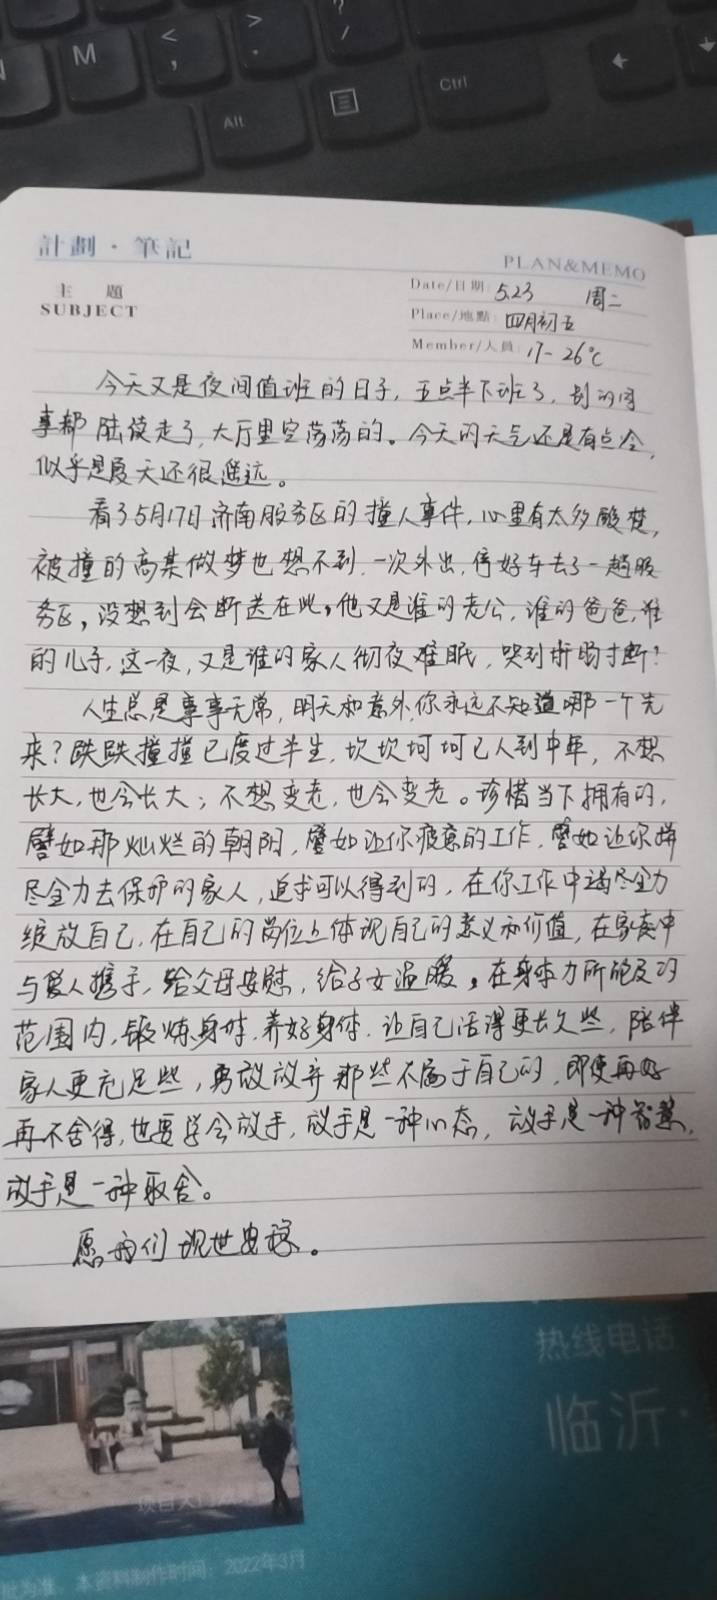 M
<
,
>
.
?
/
Alt
Ctrl
計劃·筆記
PLAN&MEMO
主 題
SUBJECT
Date/日期: 5.23 周二
Place/地點: 四月初五
Member/人員: 17-26℃
今天又是夜间值班的日子，五点半下班了，别的同
事都陆续走了，大厅里空荡荡的。今天的天气还是有点冷，
似乎是夏天还很遥远。
看了5月17日济南服务区的撞人事件，心里有太多酸楚，
被撞的高某做梦也想不到，一次外出，停好车去了一趟服
务区，没想到会断送在此，他又是谁的老公，谁的爸爸，谁
的儿子，这一夜，又是谁的家人彻夜难眠，哭到肝肠寸断？
人生总是事事无常，明天和意外，你永远不知道哪一个先
来？跌跌撞撞已度过半生，坎坎坷坷已人到中年，不想
长大，也会长大；不想变老，也会变老。珍惜当下拥有的，
譬如那灿烂的朝阳，譬如让你疲惫的工作，譬如让你拼
尽全力去保护的家人，追求可以得到的，在你工作中竭尽全力
绽放自己，在自己的岗位上体现自己的意义和价值，在家庭中
与爱人携手，给父母安慰，给子女温暖，在身体力所能及的
范围内，锻炼身体，养好身体，让自己活得更长久些，陪伴
家人更充足些，勇敢放弃那些不属于自己的，即使再好
再不舍得，也要学会放手，放手是一种心态，放手是一种智慧，
放手是一种取舍。
愿我们现世安稳。
热线电话
临沂·
项目大门
批为准。本资料制作时间：2022年3月